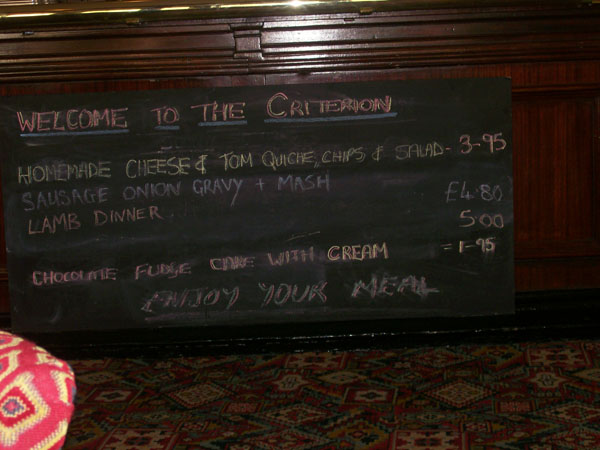 WELCOME TO THE CRITERION
HOMEMADE CHEESE & TOM QUICHE, CHIPS & SALAD - 3-95
SAUSAGE ONION GRAVY + MASH £4.80
LAMB DINNER 5.00
CHOCOLATE FUDGE CAKE WITH CREAM = 1-95
ENJOY YOUR MEAL